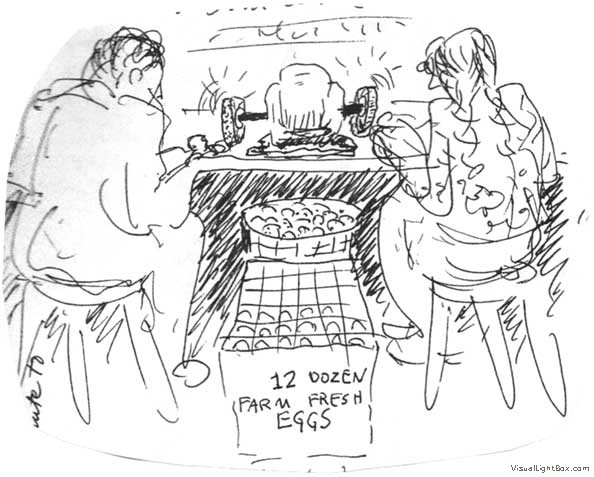 12 DOZEN
FARM FRESH
EGGS
VisualLightBox.com